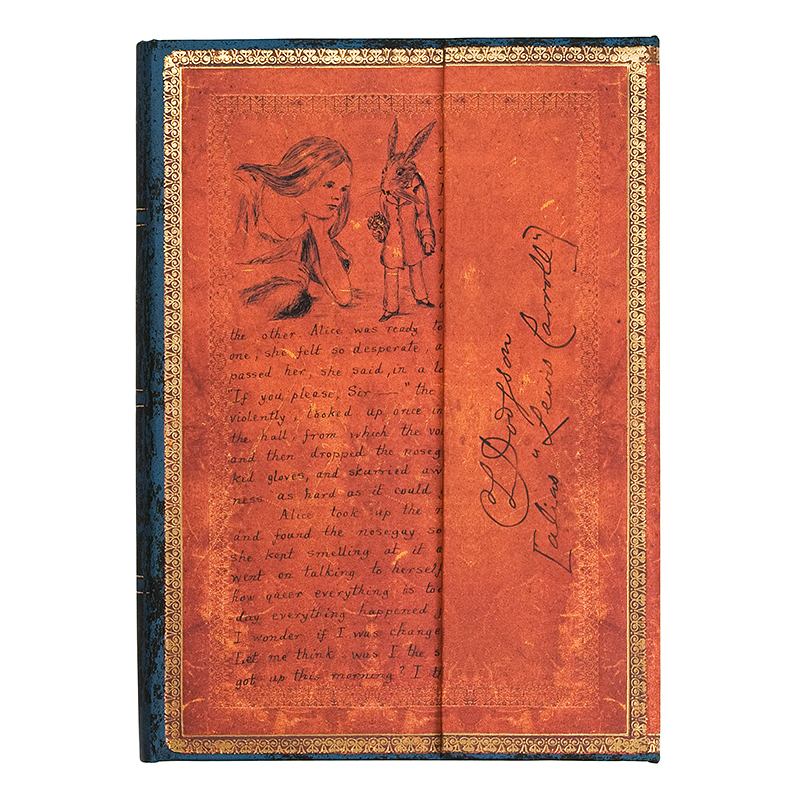 the other. Alice was ready to
one, she felt so desperate, a
passed her, she said, in a lo
"If you please, Sir —" the
violently, looked up once in
the hall, from which the vo
and then dropped the noseg
kid gloves, and skurried aw
ness as hard as it could
Alice took up the n
and found the nosegay so
she kept smelling at it a
went on talking to herself
how queer everything is tod
day everything happened j
I wonder if I was change
Let me think: was I the s
got up this morning? I th
CLDodgson
[alias "Lewis Carroll"]